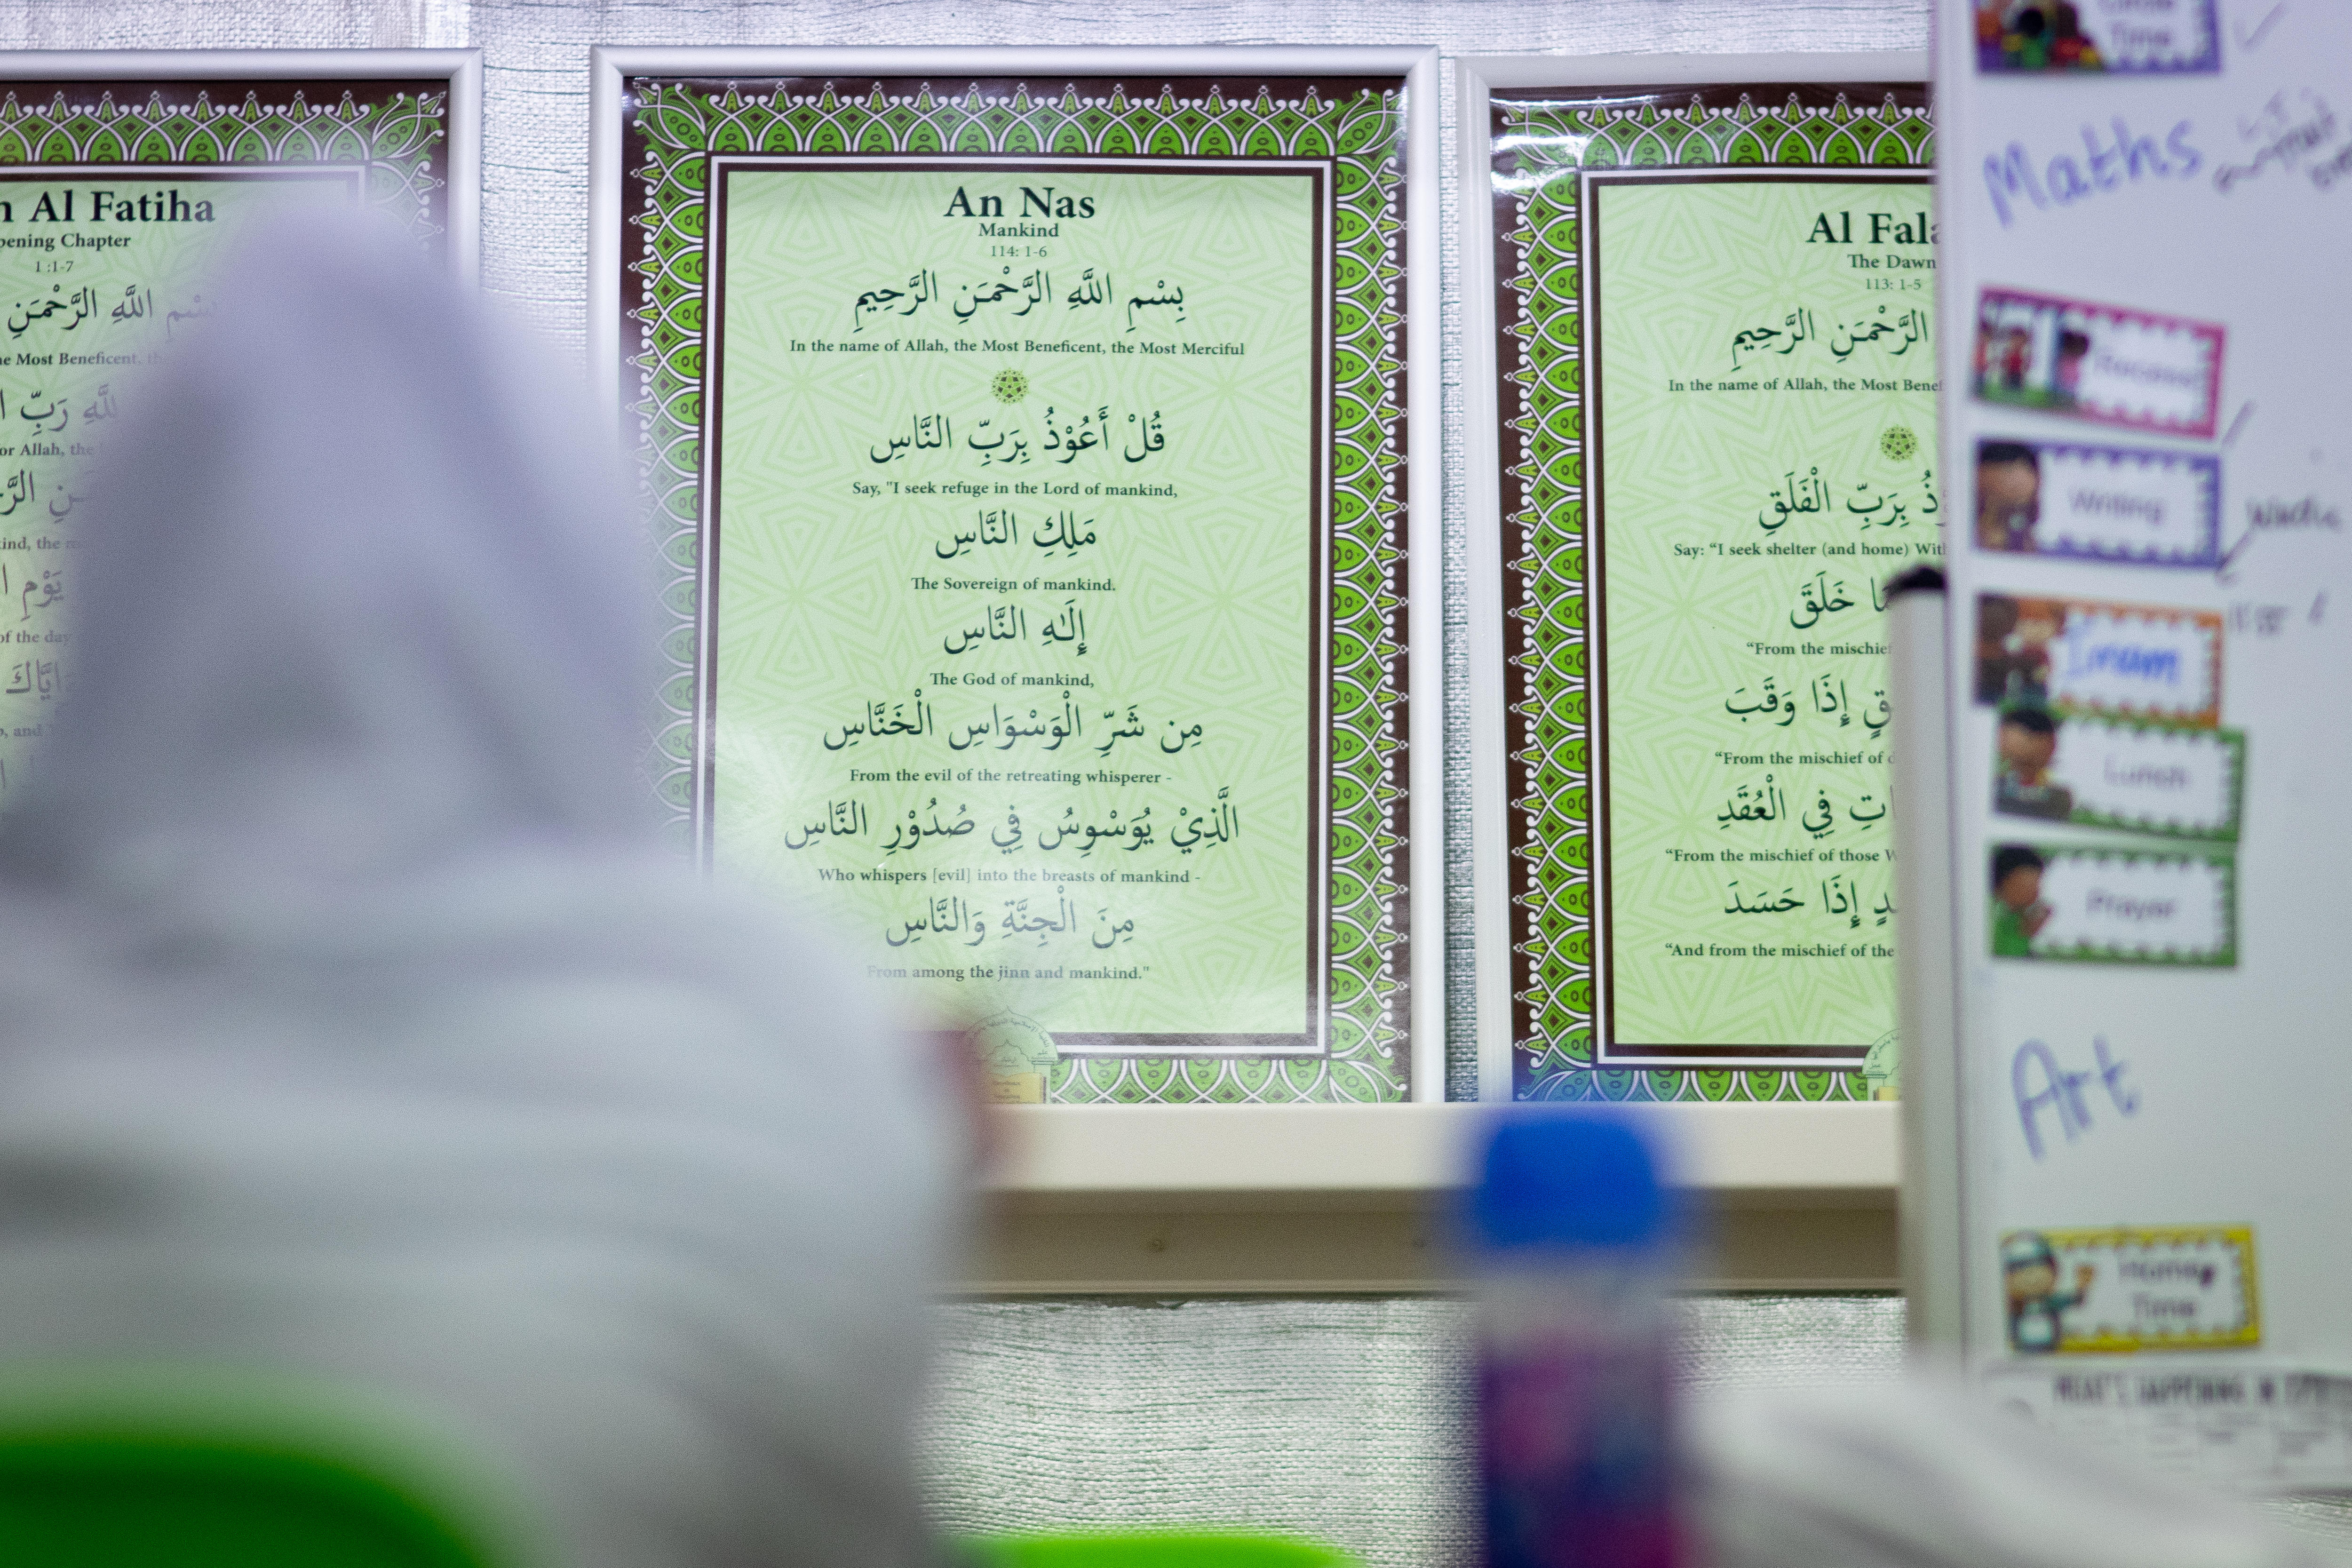 Al Fatiha
pening Chapter
1 :1-7
بِسْمِ اللَّهِ الرَّحْمَـنِ
Most Beneficent,
رَبِّ
or Allah, the
of the day
An Nas
Mankind
114: 1-6
بِسْمِ اللَّهِ الرَّحْمَـنِ الرَّحِيمِ
In the name of Allah, the Most Beneficent, the Most Merciful
قُلْ أَعُوْذُ بِرَبِّ النَّاسِ
Say, "I seek refuge in the Lord of mankind,
مَلِكِ النَّاسِ
The Sovereign of mankind.
إِلَـٰهِ النَّاسِ
The God of mankind,
مِن شَرِّ الْوَسْوَاسِ الْخَنَّاسِ
From the evil of the retreating whisperer -
الَّذِيْ يُوَسْوِسُ فِي صُدُوْرِ النَّاسِ
Who whispers [evil] into the breasts of mankind -
مِنَ الْجِنَّةِ وَالنَّاسِ
From among the jinn and mankind."
Al Fala
The Dawn
113: 1-5
الرَّحْمَـنِ الرَّحِيمِ
In the name of Allah, the Most Benef
ذُ بِرَبِّ الْفَلَقِ
Say: “I seek shelter (and home) Wit
خَلَقَ
“From the mischie
قٍ إِذَا وَقَبَ
“From the mischief of
اتِ فِي الْعُقَدِ
“From the mischief of those W
دٍ إِذَا حَسَدَ
“And from the mischief of the
Circle
Time
Maths
Recess
Writing
Imam
Lunch
Prayer
Art
Home
Time